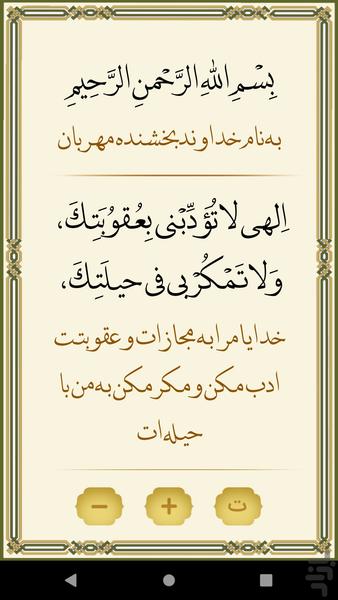 بِسْمِ اللهِ الرَّحْمنِ الرَّحِیمِ
به نام خداوند بخشنده مهربان
اِلهی لا تُؤَدِّبْنی بِعُقوُبَتِكَ،
وَلا تَمْكُرْ بی فی حیلَتِكَ،
خدایا مرا به مجازات و عقوبتت
ادب مکن و مکر مکن به من با
حیله‌ات
− + ت
بازار